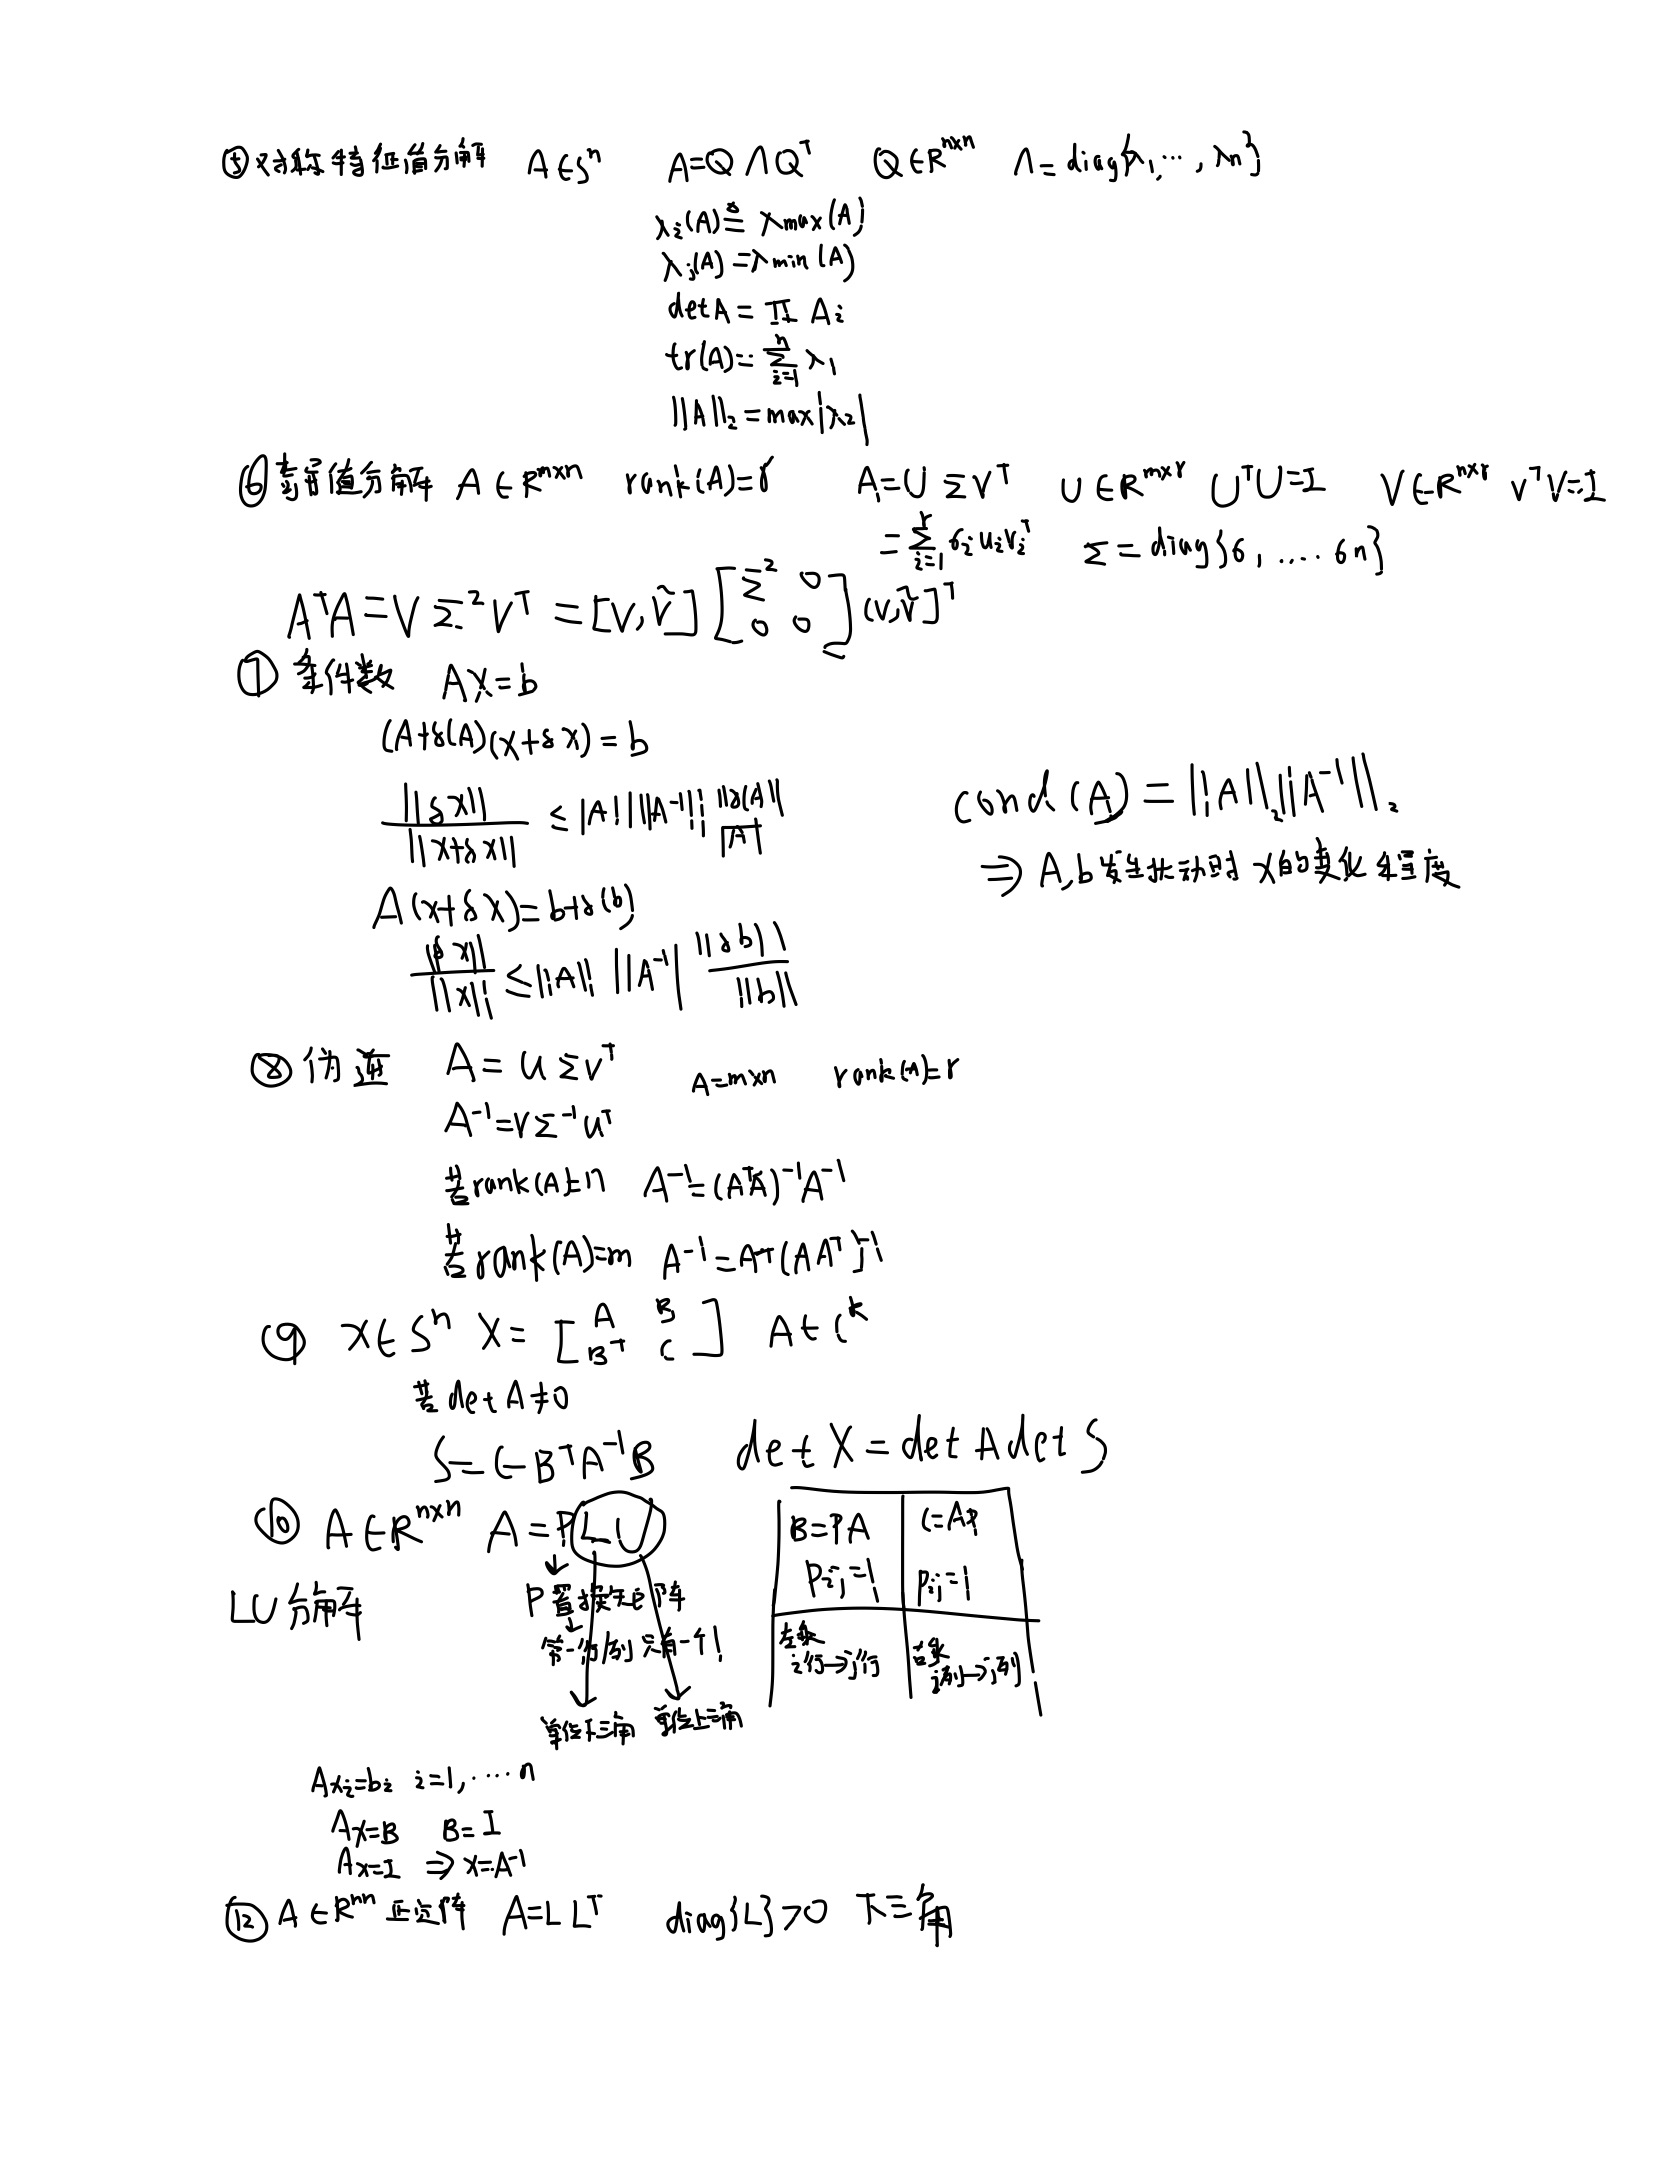 ⑤ 对称特征值分解 A∈Sⁿ A=QΛQᵀ Q∈Rⁿˣⁿ Λ=diag{λ₁,⋯,λn}
λᵢ(A)≜λmax(A)
λⱼ(A)=λmin(A)
detA=∏Aᵢ
tr(A)=∑ⁿᵢ₌₁λ₁
||A||₂=max|λ₂|
⑥ 奇异值分解 A∈Rᵐˣⁿ rank(A)=r A=UΣVᵀ U∈Rᵐˣʳ UᵀU=I V∈Rⁿˣʳ VᵀV=I
=∑ʳᵢ₌₁σᵢuᵢvᵢᵀ Σ=diag{σ,....σn}
AᵀA=VΣ²Vᵀ=[V,Ṽ][Σ² 0
0 0](V,Ṽ]ᵀ
⑦ 条件数 Ax=b
(A+δ(A)(x+δx)=b
||δx||/||x+δx|| ≤|A||||A⁻¹|| ||δ(A||/|A|
cond(A)=||A||₂||A⁻¹||₂
⇒A,b发生扰动时x的变化程度
A(x+δx)=b+δ(b)
||δx||/||x|| ≤||A|| ||A⁻¹| ||δb||/||b||
⑧ 伪逆 A=UΣVᵀ A=m×n rank(A)=r
A⁻¹=VΣ⁻¹Uᵀ
若rank(A)=n A⁻¹=(AᵀA)⁻¹A⁻¹
若rank(A)=m A⁻¹=Aᵀ(AAᵀ)⁻¹
⑨ x∈Sⁿ X=[A B
Bᵀ C] A∈Cᵏ
若detA≠0
S=C-BᵀA⁻¹B detX=detAdetS
⑩ A∈Rⁿˣⁿ A=PLU
LU分解
P置换矩阵
第一行/列只有一个1
单位下三角 单位上三角
B=PA C=AP
Pij=1 Pij=1
左乘 右乘
i行→j行 i列→j列
Axᵢ=bᵢ i=1,⋯⋯n
AX=B B=I
Ax=I ⇒x=A⁻¹
⑫ A∈Rⁿⁿ 正定阵 A=LLᵀ diag{L}>0 下三角